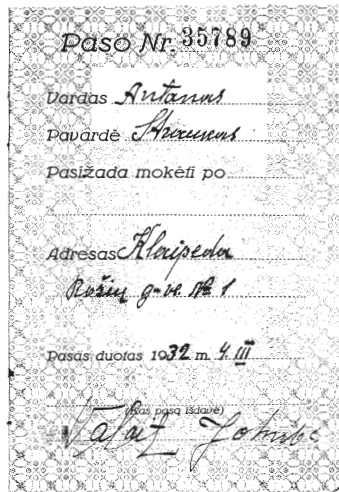 Paso Nr. 35789
Vardas Antanas
Pavardė
Pasižada mokėti po
Adresas Klaipeda
Rožių g-vė № 1
Pasas duotas 1932 m. 4. III
(Kas pasą išdavė)